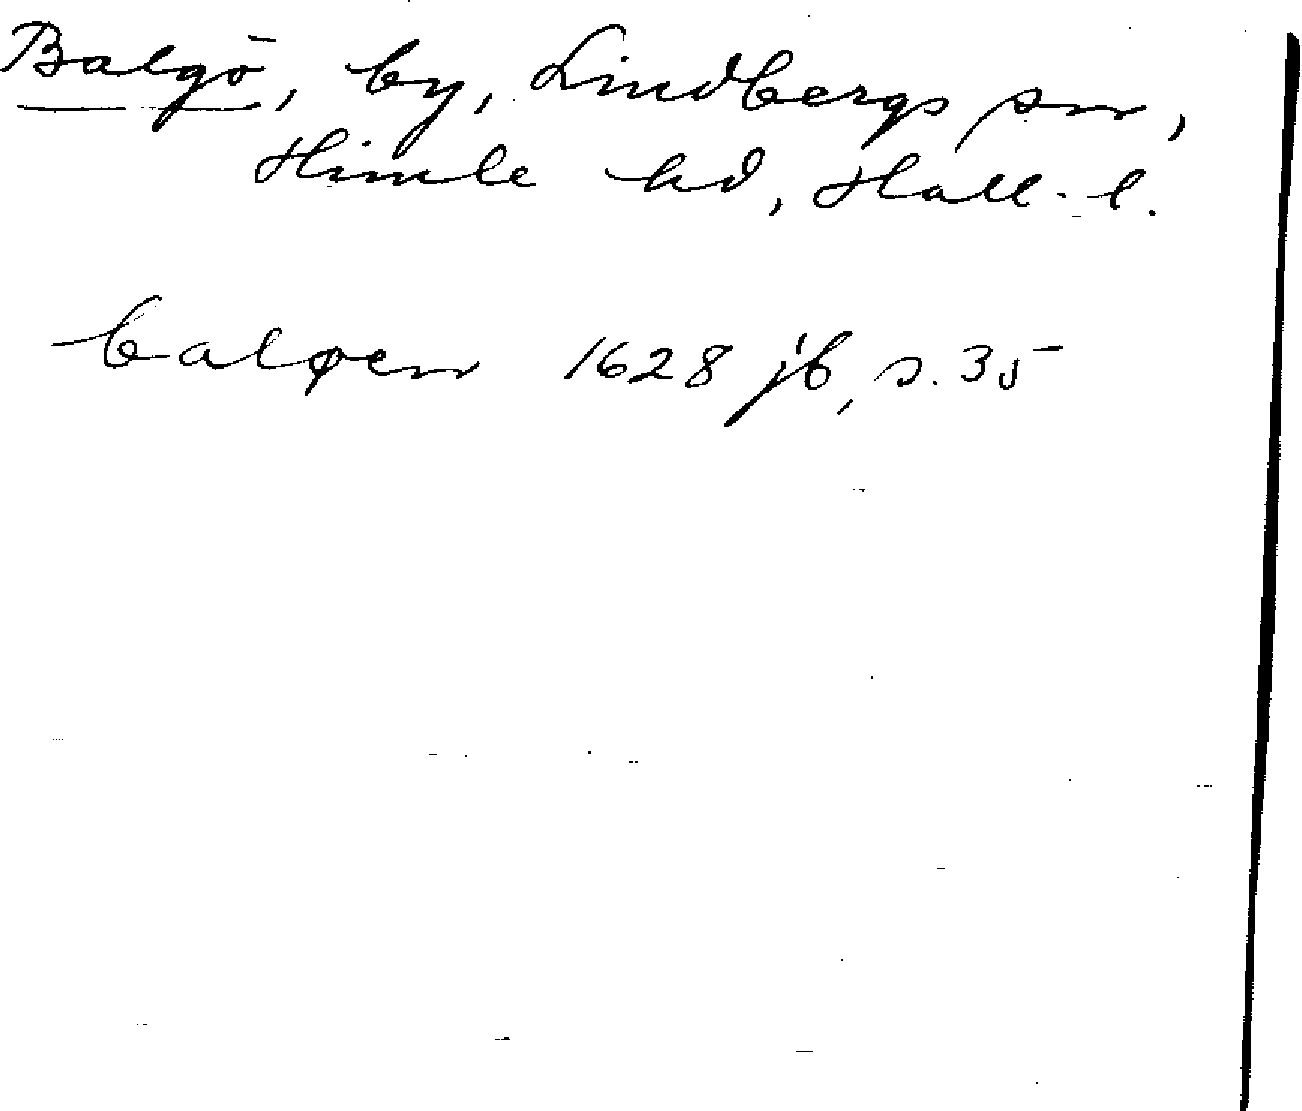 Balgö, by, Lindbergs sn,
Himle hd, Hall. l.
baløen 1628 jb, s. 35